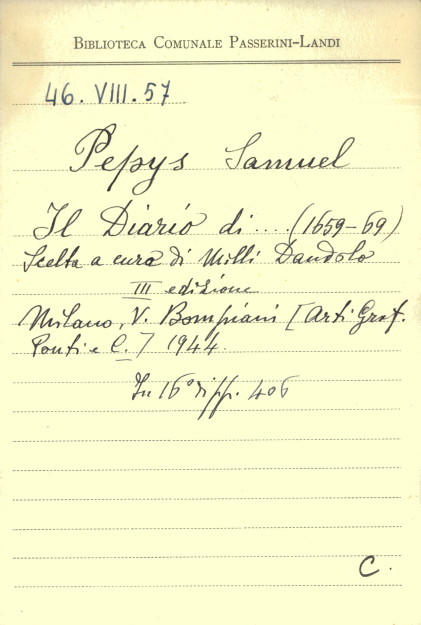 BIBLIOTECA COMUNALE PASSERINI-LANDI
46. VIII. 57
Pepys Samuel
Il Diario di ... (1659-69)
Scelta a cura di Milli Dandolo
III edizione
Milano, V. Bompiani [Arti Graf.
Ponti e C.] 1944.
In 16° di pp. 406
C.